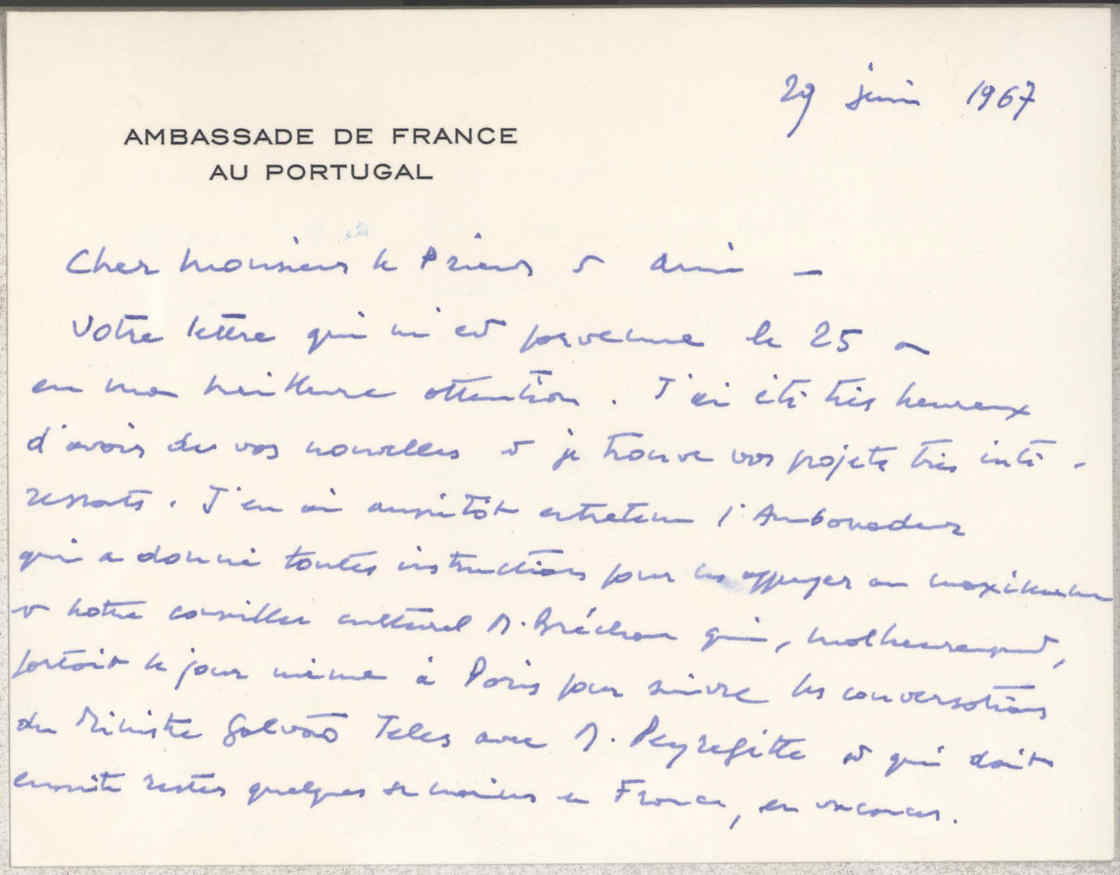 29 juin 1967
AMBASSADE DE FRANCE
AU PORTUGAL
Cher Monsieur le Prieur et ami —
Votre lettre qui m'est parvenue le 25 a
eu ma meilleure attention. J'ai été très heureux
d'avoir de vos nouvelles et je trouve vos projets très inté-
ressants. J'en ai aussitôt entretenu l'Ambassadeur
qui a donné toutes instructions pour les appuyer au maximum
et notre conseiller culturel M. Bréchon qui, malheureusement,
partait le jour même à Paris pour suivre les conversations
du Ministre Galvão Teles avec M. Peyrefitte et qui doit
ensuite rester quelques semaines en France, en vacances.